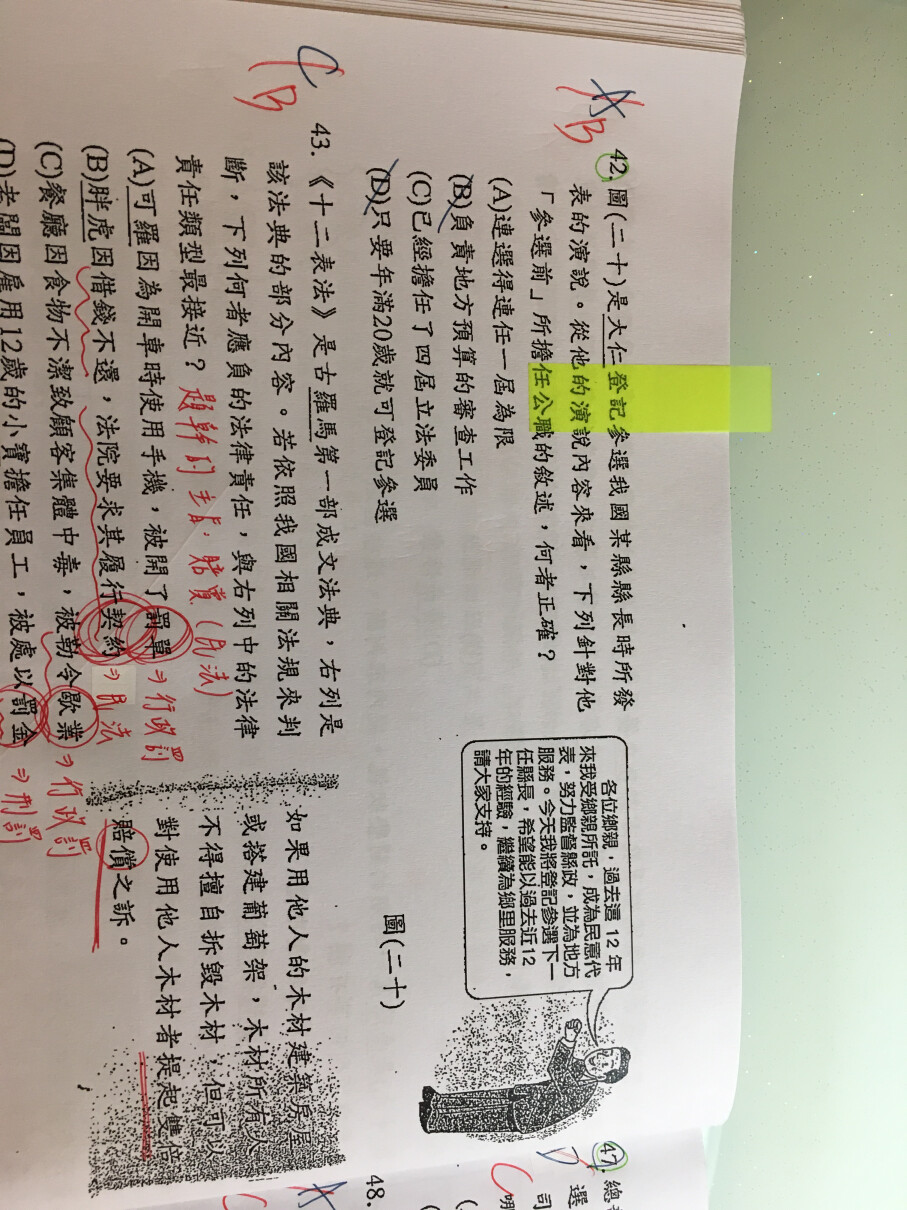 A
B
42. 圖(二十)是大仁登記參選我國某縣縣長時所發
表的演說。從他的演說內容來看,下列針對他
「參選前」所擔任公職的敘述,何者正確?
(A)連選得連任一屆為限
(B)負責地方預算的審查工作
(C)已經擔任了四屆立法委員
(D)只要年滿20歲就可登記參選
各位鄉親,過去這12年
來我受鄉親所託,成為民意代
表,努力監督縣政,並為地方
服務。今天我將登記參選下一
任縣長,希望能以過去近12
年的經驗,繼續為鄉里服務,
請大家支持。
圖(二十)
C
B
43. 《十二表法》是古羅馬第一部成文法典,右列是
該法典的部分內容。若依照我國相關法規來判
斷,下列何者應負的法律責任,與右列中的法律
責任類型最接近?
賠償(民法)
(A)可羅因為開車時使用手機,被開了罰單
⇒行政罰
(B)胖虎因借錢不還,法院要求其履行契約
⇒民法
(C)餐廳因食物不潔致顧客集體中毒,被勒令歇業
⇒行政罰
(D)老闆因雇用12歲的小寶擔任員工,被處以罰金
⇒刑罰
如果用他人的木材建築房屋
或搭建葡萄架,木材所有人
不得擅自拆毀木材,但可以
對使用他人木材者提起雙倍
賠償之訴。
D
C
47. 總
選
司
48.
A
C